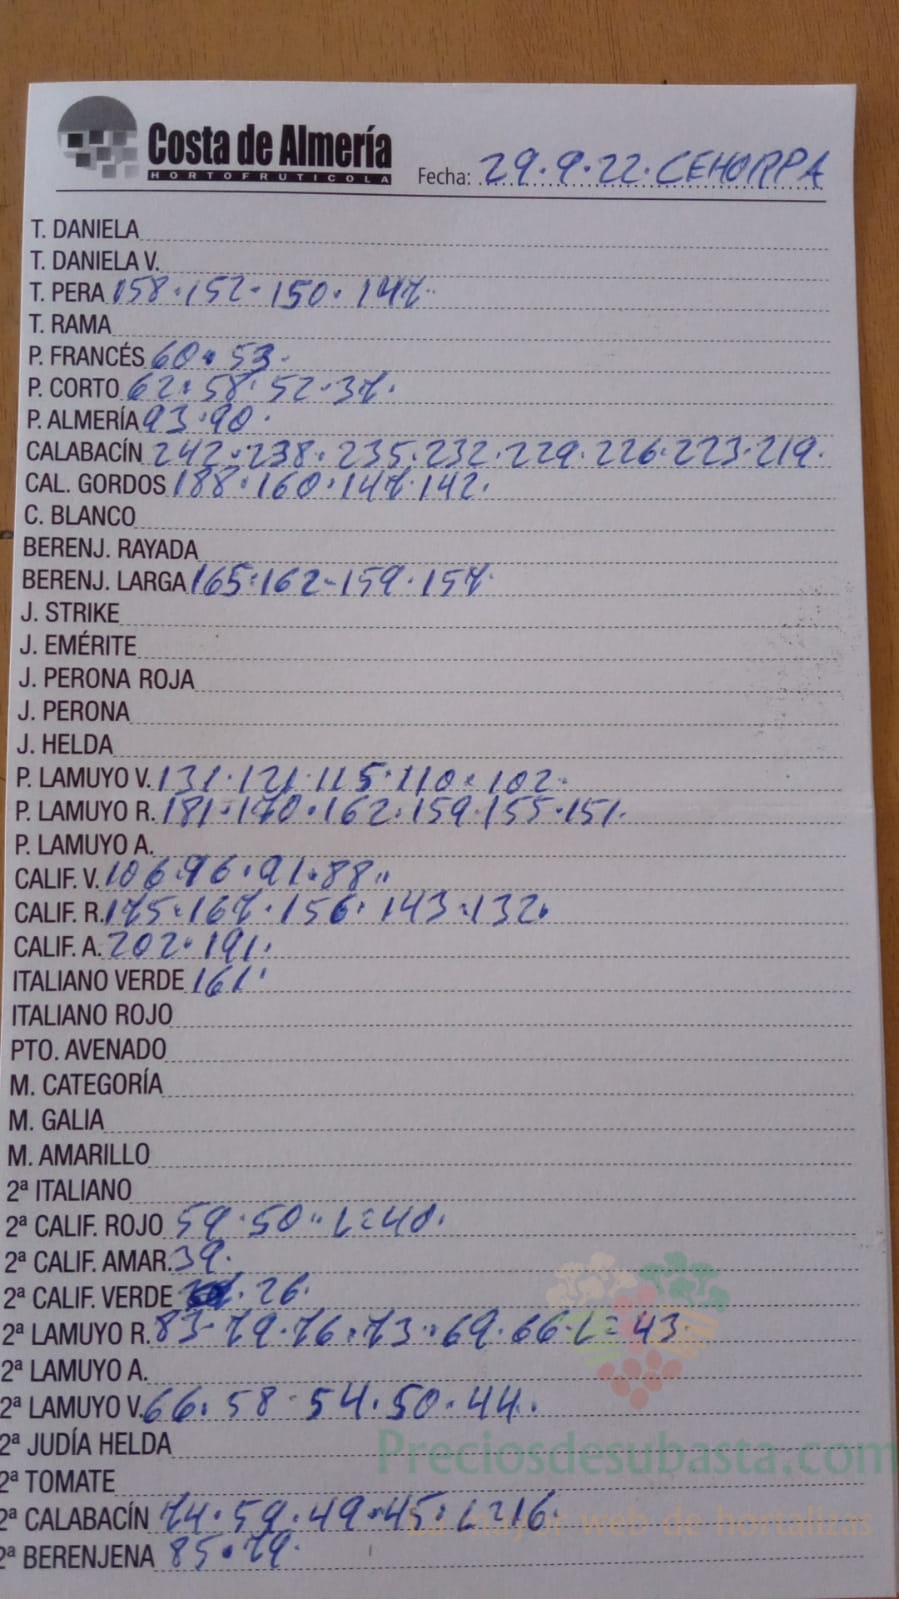 Costa de Almería
HORTOFRUTICOLA
Fecha: 29.9.22. CEHORPA
T. DANIELA
T. DANIELA V.
T. PERA 158.152.150.147
T. RAMA
P. FRANCÉS 60.53.
P. CORTO 62.58.52.37.
P. ALMERÍA 93.90.
CALABACÍN 242.238.235.232.229.226.223.219.
CAL. GORDOS 188.160.147.142.
C. BLANCO
BERENJ. RAYADA
BERENJ. LARGA 165.162-159.157.
J. STRIKE
J. EMÉRITE
J. PERONA ROJA
J. PERONA
J. HELDA
P. LAMUYO V. 131.121.115.110.102.
P. LAMUYO R. 181.170.162.159.155.151.
P. LAMUYO A.
CALIF. V. 106.96.91.88.
CALIF. R. 175.167.156.143.132.
CALIF. A. 202.191.
ITALIANO VERDE 161.
ITALIANO ROJO
PTO. AVENADO
M. CATEGORÍA
M. GALIA
M. AMARILLO
2ª ITALIANO
2ª CALIF. ROJO 59.50.L=40.
2ª CALIF. AMAR. 39.
2ª CALIF. VERDE .26.
2ª LAMUYO R. 83.79.76.73.69.66.L=43.
2ª LAMUYO A.
2ª LAMUYO V. 66.58.54.50.44.
2ª JUDÍA HELDA
Preciosdesubasta.com
2ª TOMATE
2ª CALABACÍN 74.59.49.45.L=16.
La mayor web de hortalizas
2ª BERENJENA 85.79.